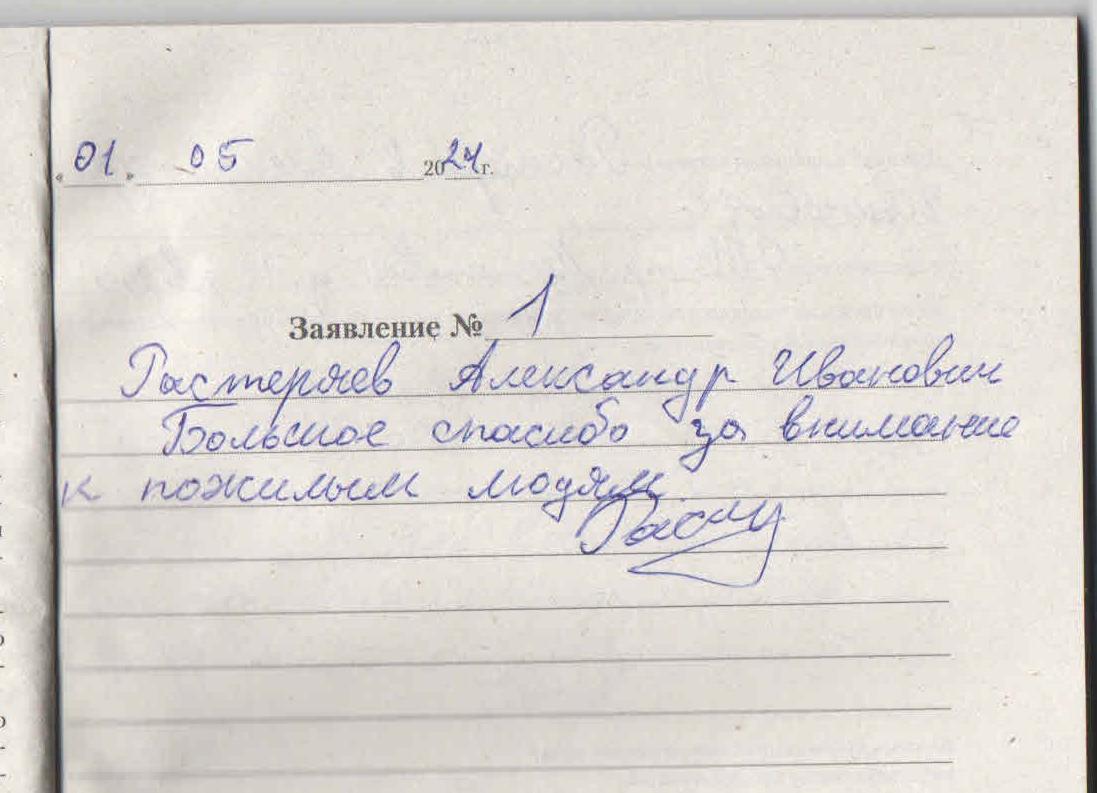 «01» 05 2024 г.
Заявление № 1
Растеряев Александр Иванович
Большое спасибо за внимание
к пожилым людям